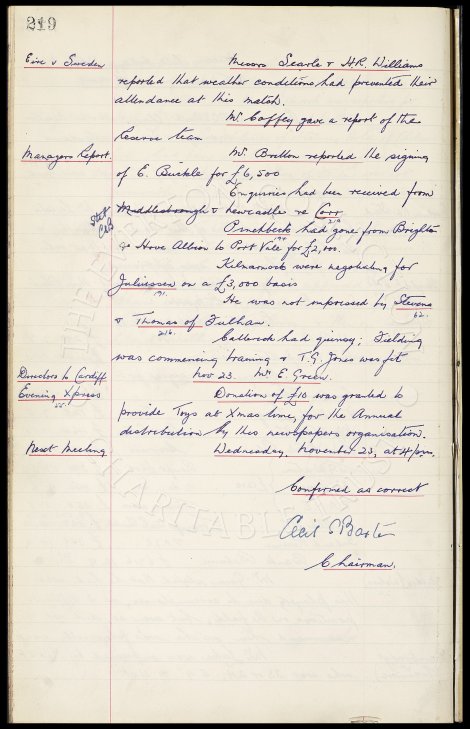 219
Eire v Sweden Messrs Searle & H.R. Williams
reported that weather conditions had prevented their
attendance at this match.
Mr Caffey gave a report of the
Reserve team
Managers Report. Mr. Britton reported the signing
of E. Buckle for £6,500
Enquiries had been received from
Middlesborough & Newcastle re Corr
219
Pinchbeck had gone from Brighton
& Hove Albion to Port Vale for £2,000.
Kilmarnock were negotiating for
Juliussen on a £3,000 basis
191.
He was not impressed by Stevens
62.
& Thomas of Fulham.
216.
Catterick had quinsy; Fielding
was commencing training & T.G. Jones was fit
Directors to Cardiff Nov 23. Mr E. Green.
Evening Xpress Donation of £10 was granted to
provide Toys at Xmas time, for the Annual
distribution by this newspapers organisation.
Next Meeting Wednesday, November 23, at 4 p.m.
Confirmed as correct
Cecil S Baxter
Chairman.